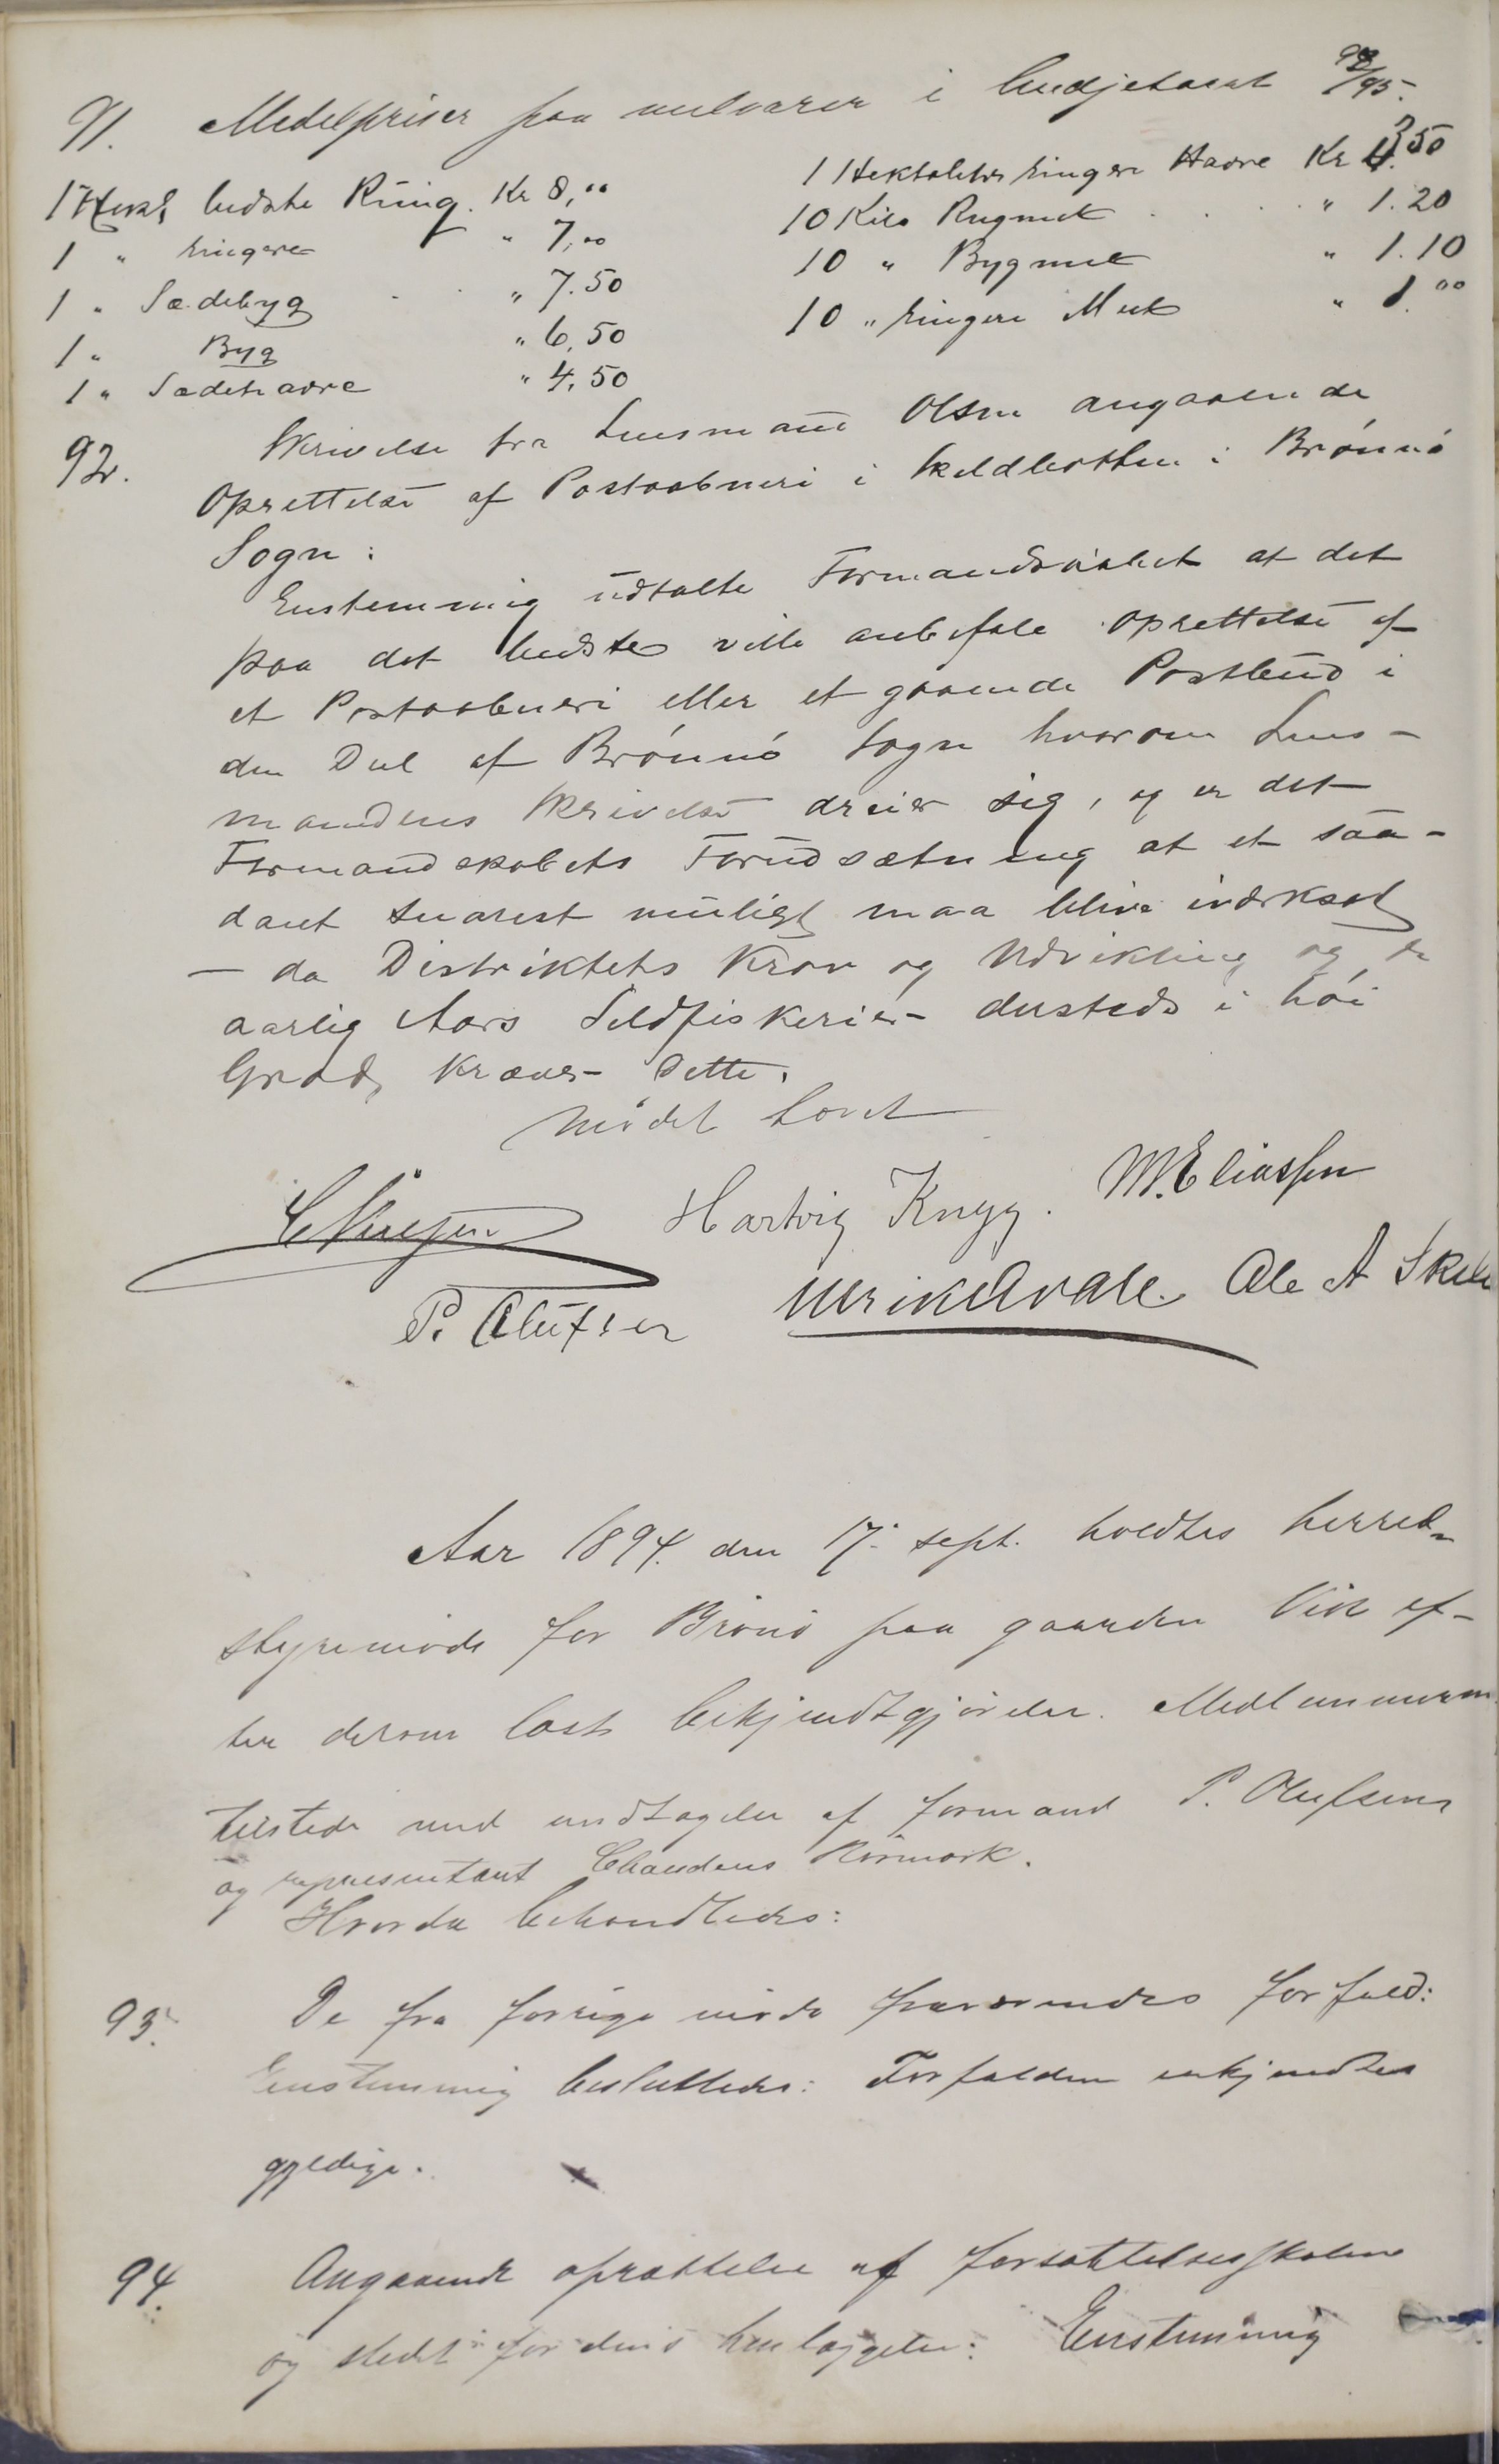 91. Medelpriser paa melvarer i budjetaaret 94/95.
1 Hektl bedste Rug. Kr 8,00
1 " ringere " 7,00
1 " Sædebyg " 7.50
1 " Byg " 6,50
1 " Sædehavre " 4,50
1 Hektoliter ringere Havre Kr 3.50
10 Kilo Rugmel " 1.20
10 " Bygmel " 1.10
10 " ringere Mel " 1.00
92. Skrivelse fra Lensmand Olsen angaaende
Oprettelse af Postaabneri i Skeldbotten i Brønnø
Sogn:
Enstemmig udtalte Formandskabet at det
paa det bedste ville anbefale oprettelse af
et Postaabneri eller et gaaende Postbud i
den Del af Brønnø Sogn hvorom Lens-
mandens Skrivelse dreier sig, og er det
Formandskabets Forudsætning at et saa-
dant snarest muligt maa blive iværksat
— da Distriktets Krav og Udvikling og de
aarlig Aars Sildfiskerier dersteds i høi
Grad, kræver dette.
Mødet hævet
Hartvig Krygg. M. Eliassen
P. Olufsen Ulrik Qvale Ole A Skil
Aar 1894. den 17. sept. holdtes herred-
styremøde for Brønø paa gaarden Vik ef-
ter derom læst bekjendtgjørelse. Medlemmerne
tilstede med undtagelse af formand P. Olufsen
og representant Rørmark.
Hvorda behandledes:
93. De fra forrige møde fraværendes forfald:
Enstemmig besluttedes: Forfalden erkjendtes
gyldige.
94. Angaaende oprættelse af fortsættelsesskolen
og stedet for dens henlæggelse: Enstemmig